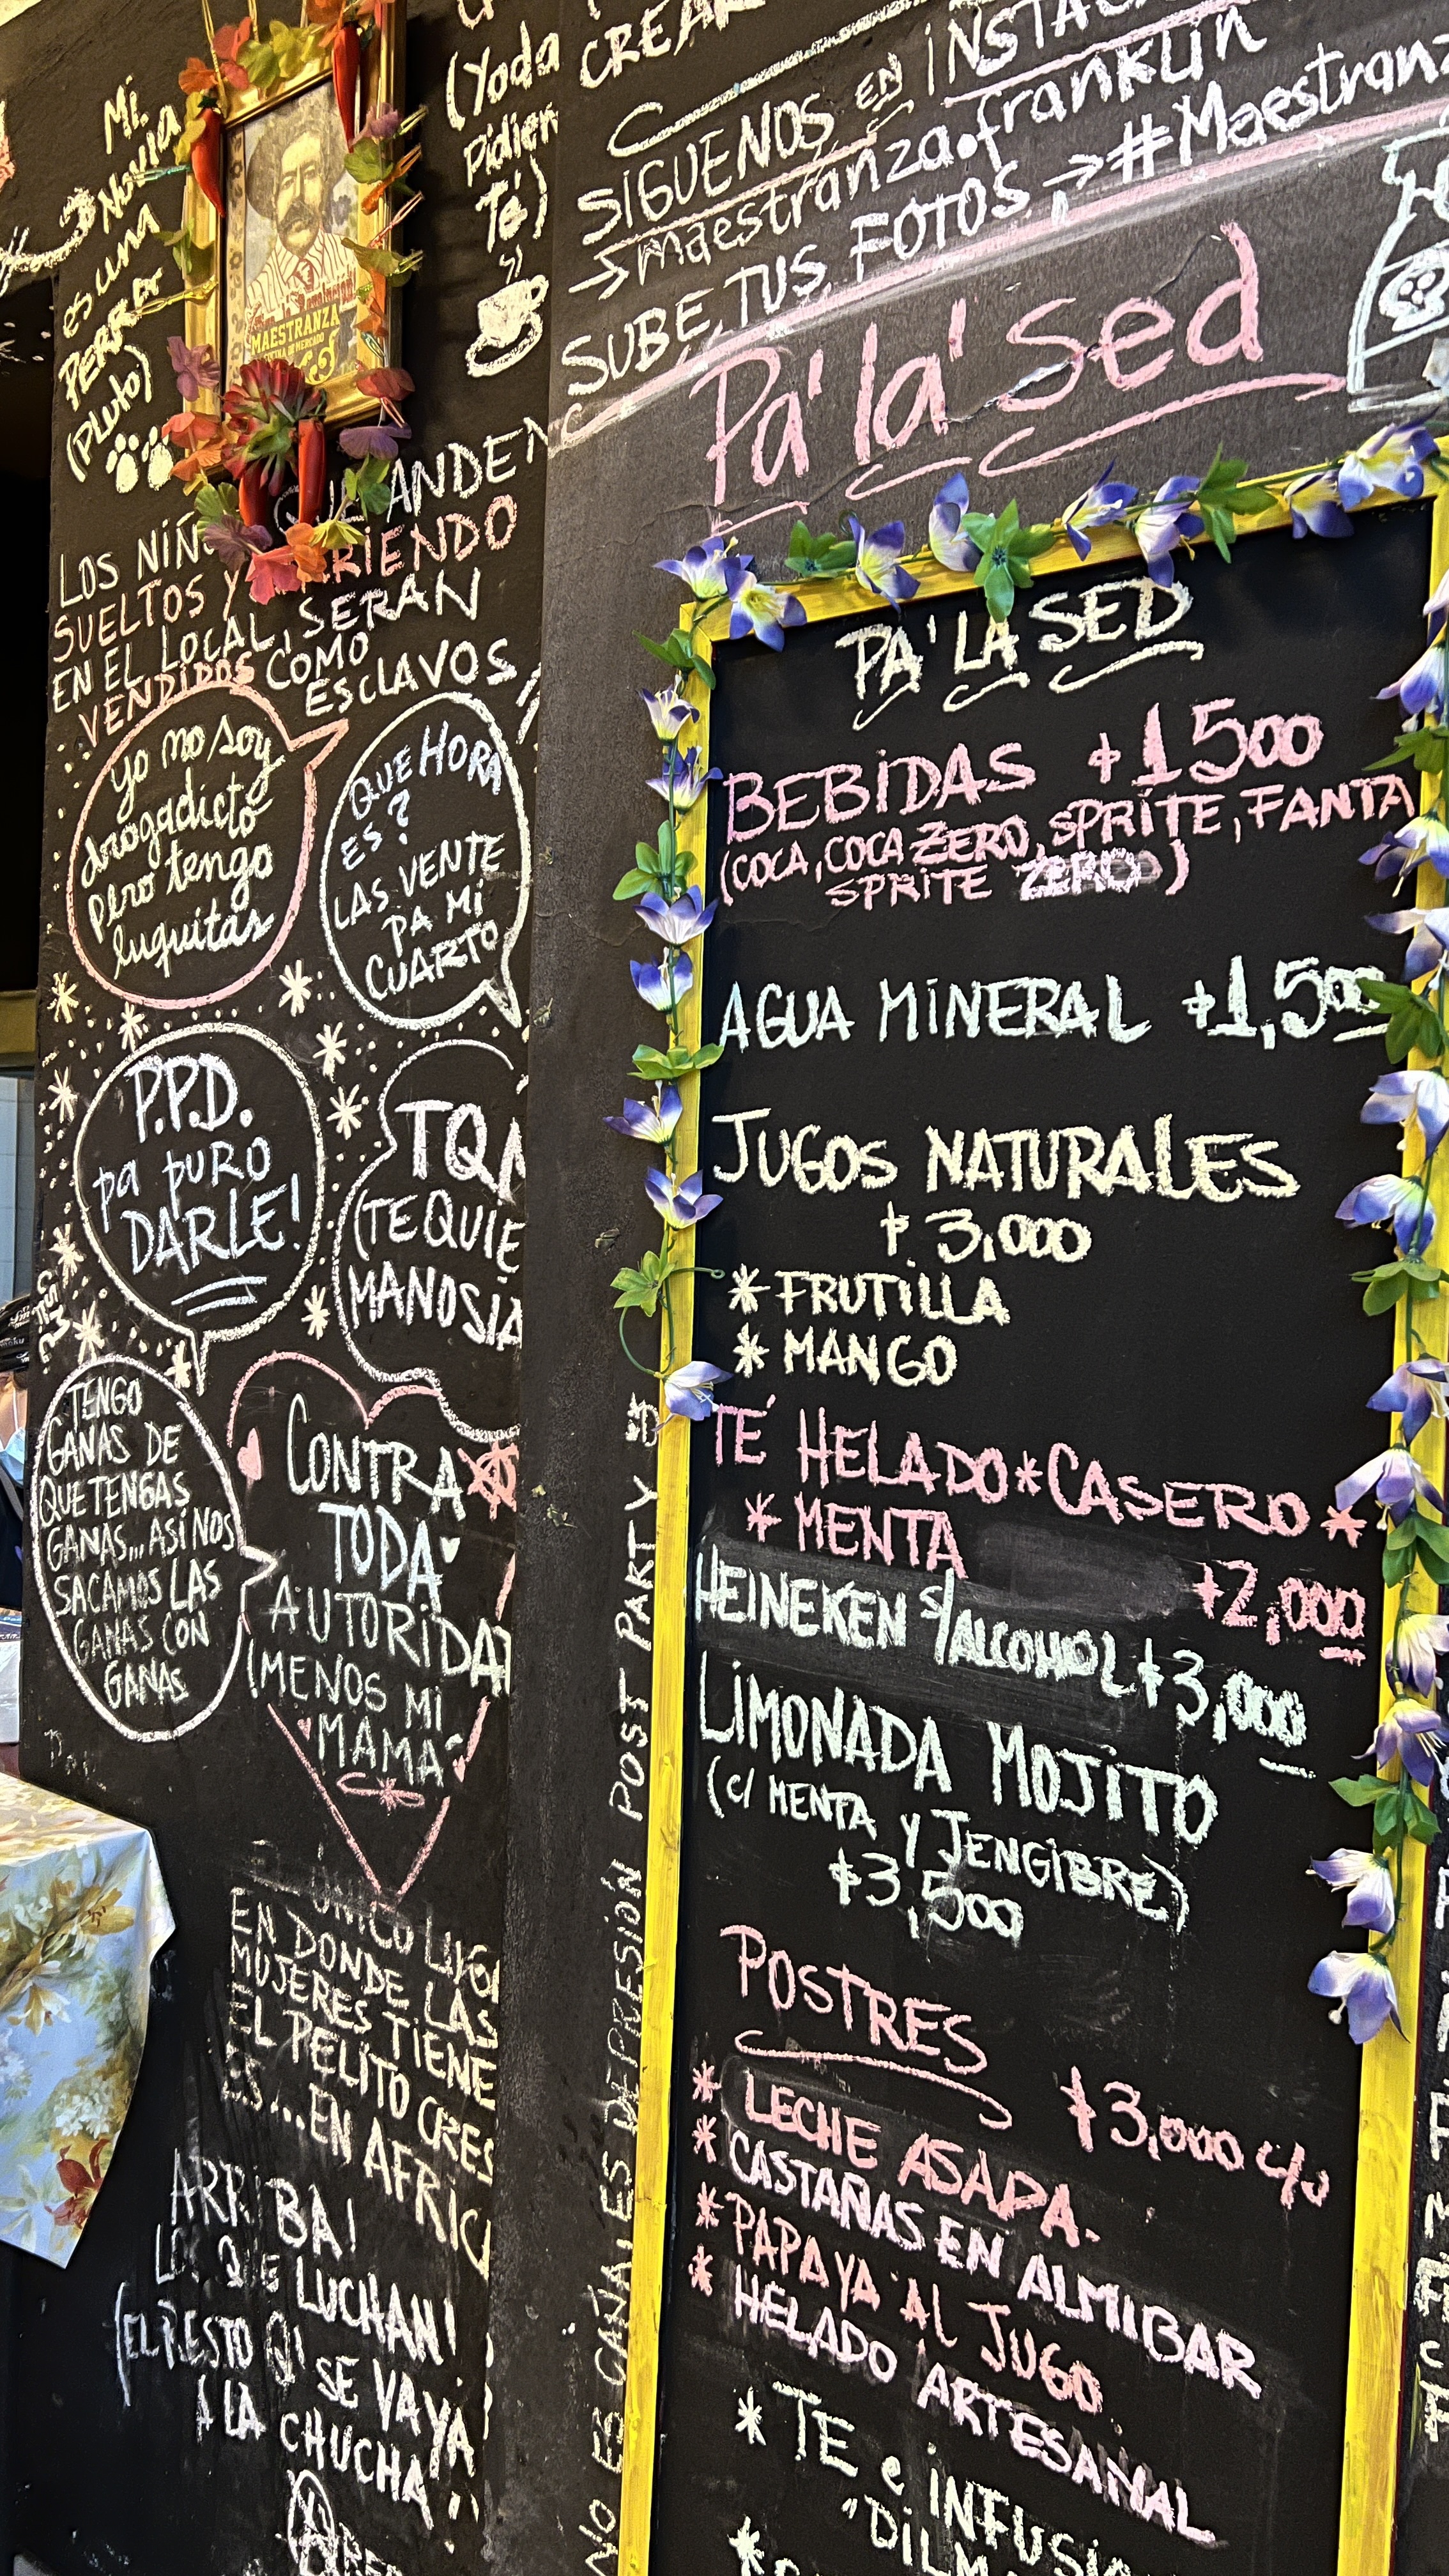 Mi
Novia
es una
PERRA
(Pluto)
MAESTRANZA
(Yoda
Pidien
Té)
CREAR
SIGUENOS EN INSTAG
→maestranza.franklin
SUBE TUS FOTOS → #Maestranz
Pa' la' sed
LOS NIÑOS ANDEN
SUELTOS Y RIENDO
EN EL LOCAL, SERAN
VENDIDOS COMO
ESCLAVOS
yo no soy
drogadicto
pero tengo
luquitas
QUE HORA
ES?
LAS VENTE
PA MI
CUARTO
P.P.D.
pa PURO
DARLE!
TQM
(TE QUIE
MANOSIA
TENGO
GANAS DE
QUE TENGAS
GANAS... ASI NOS
SACAMOS LAS
GANAS CON
GANAS
CONTRA
TODA
AUTORIDAD
(MENOS MI
MAMA
UNICO
EN DONDE LAS
MUJERES TIENE
EL PELITO CRES
ES... EN AFRIC
ARRIBA!
LOS QUE LUCHAN!
(EL RESTO QL SE VAYA
A LA CHUCHA
NO ES CAÑA, ES DEPRESIÓN POST PARTY
PA' LA SED
BEBIDAS $1500
(COCA, COCA ZERO, SPRITE, FANTA
SPRITE ZERO)
AGUA MINERAL $1,500
JUGOS NATURALES
$3,000
* FRUTILLA
* MANGO
TÉ HELADO * CASERO *
* MENTA
$2,000
HEINEKEN S/ALCOHOL $3,000
LIMONADA MOJITO
(C/ MENTA Y JENGIBRE)
$3,500
POSTRES
$3,000 c/u
* LECHE ASADA.
* CASTAÑAS EN ALMIBAR
* PAPAYA AL JUGO
* HELADO ARTESANAL
* TE e INFUSI
"DILM